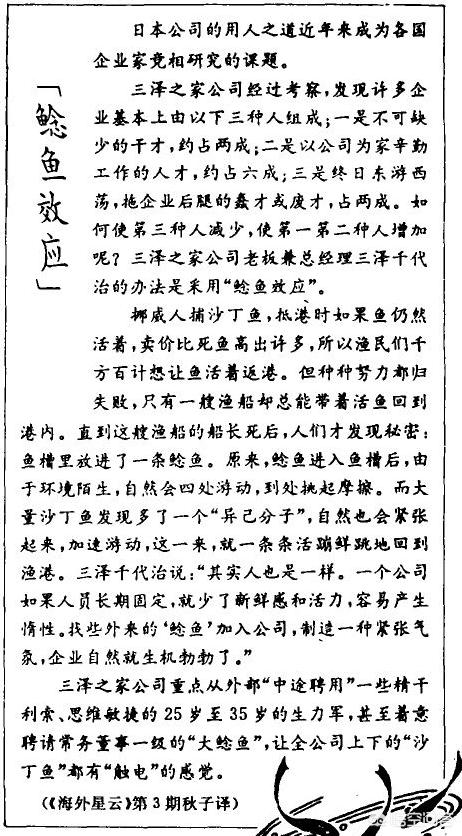 「鲶鱼效应」
日本公司的用人之道近年来成为各国
企业家竞相研究的课题。
三泽之家公司经过考察,发现许多企
业基本上由以下三种人组成;一是不可缺
少的干才,约占两成;二是以公司为家辛勤
工作的人才,约占六成;三是终日东游西
荡,拖企业后腿的蠢才或废才,占两成。如
何使第三种人减少,使第一第二种人增加
呢?三泽之家公司老板兼总经理三泽千代
治的办法是采用“鲶鱼效应”。
挪威人捕沙丁鱼,抵港时如果鱼仍然
活着,卖价比死鱼高出许多,所以渔民们千
方百计想让鱼活着返港。但种种努力都归
失败,只有一艘渔船却总能带着活鱼回到
港内。直到这艘渔船的船长死后,人们才发现秘密:
鱼槽里放进了一条鲶鱼。原来,鲶鱼进入鱼槽后,由
于环境陌生,自然会四处游动,到处挑起摩擦。而大
量沙丁鱼发现多了一个“异己分子”,自然也会紧张
起来,加速游动,这一来,就一条条活蹦鲜跳地回到
渔港。三泽千代治说:“其实人也是一样。一个公司
如果人员长期固定,就少了新鲜感和活力,容易产生
惰性。找些外来的‘鲶鱼’加入公司,制造一种紧张气
氛,企业自然就生机勃勃了。”
三泽之家公司重点从外部“中途聘用”一些精干
利索、思维敏捷的25岁至35岁的生力军,甚至着意
聘请常务董事一级的“大鲶鱼”,让全公司上下的“沙
丁鱼”都有“触电”的感觉。
(《海外星云》第3期秋子译)